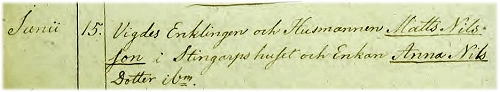 Junii 15. Vigdes Enklingen och Husmannen Matts Nils-
son i Stingarpshuset och Enkan Anna Nils
Dotter ibm